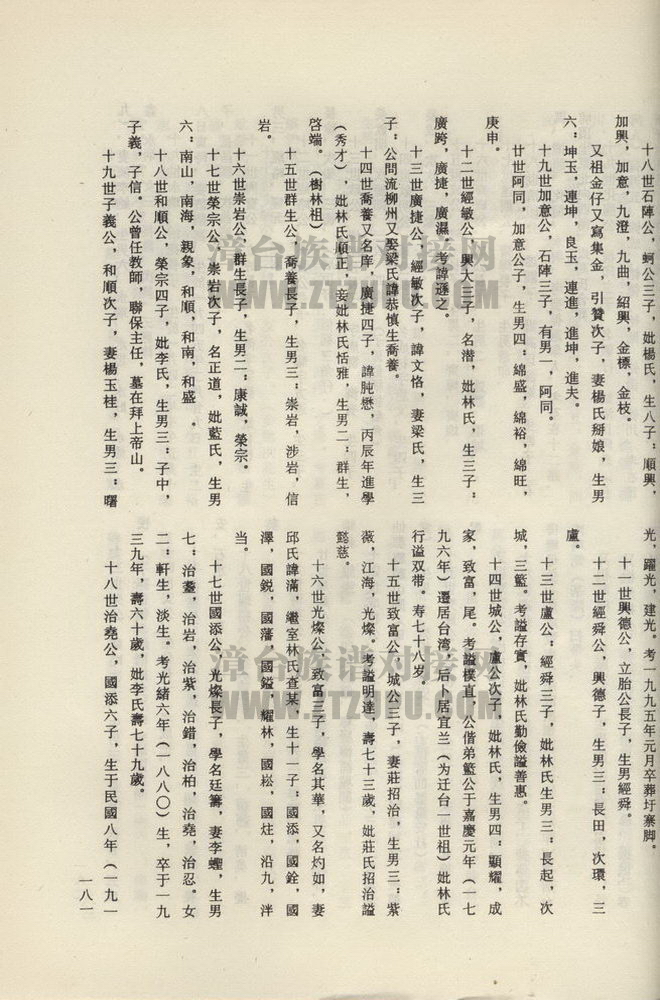 十八世石陣公，蚵公三子，妣楊氏，生八子：順興，
加興，加意，九澄，九曲，紹興，金標，金枝。
又祖金仔又寫集金，引贊次子，妻楊氏掰娘，生男
六：坤玉，連坤，良玉，連進，進坤，進夫。
十九世加意公，石陣三子，有男一，阿同。
廿世阿同，加意公子，生男四：綿盛，綿裕，綿旺，
庚申。
十二世經敏公，興大三子，名潜，妣林氏，生三子：
廣跨，廣捷，廣濕。考諱遜之。
十三世廣捷公，經敏次子，諱文恪，妻梁氏，生三
子：公問流柳州又娶梁氏諱恭慎生喬養。
十四世喬養又名庠，廣捷四子，諱肫懋，丙辰年進學
（秀才），妣林氏順正，妾妣林氏恬雅，生男二：群生，
啓端。（樹林祖）
十五世群生公，喬養長子，生男三：崇岩，涉岩，信
岩。
十六世崇岩公，群生長子，生男二：康誠，榮宗。
十七世榮宗公，崇岩次子，名正道，妣藍氏，生男
六：南山，南海，親象，和順，和南，和盛。
十八世和順公，榮宗四子，妣李氏，生男三：子中，
子義，子信。公曾任教師，聯保主任，墓在拜上帝山。
十九世子義公，和順次子，妻楊玉桂，生男三：曙
光，躍光，建光。考一九九五年元月卒葬圩寨脚。
十一世興德公，立胎公長子，生男經舜。
十二世經舜公，興德子，生男三：長田，次環，三
盧。
十三世盧公：經舜三子，妣林氏生男三：長起，次
城，三籃。考謚存實，妣林氏勤儉謚善惠。
十四世城公，盧公次子，妣林氏，生男四：顯耀，成
家，致富，尾。考謚樸直，公偕弟籃公于嘉慶元年（一七
九六年）遷居台湾，后卜居宜兰（为迁台一世祖）妣林氏
行謚双带。寿七十八岁。
十五世致富公，城公三子，妻莊招治，生男三：紫
薇，江海，光燦。考謚明達，壽七十三歲，妣莊氏招治謚
懿慈。
十六世光燦公，致富三子，學名其華，又名灼如，妻
邱氏諱滿，繼室林氏查某，生十一子：國添，國銓，國
澤，國鋭，國藩，國鎰，耀林，國松，國炷，沿九，泮
当。
十七世國添公，光燦長子，學名廷籌，妻李蟶，生男
七：治臺，治岩，治紫，治錯，治柏，治堯，治忍。女
二：軒生，淡生。考光緒六年（一八八〇）生，卒于一九
三九年，壽六十歲，妣李氏壽七十九歲。
十八世治堯公，國添六子，生于民國八年（一九一
一八一
漳台族谱对接网
WWW.ZTZUPU.COM
漳台族谱对接网
WWW.ZTZUPU.COM